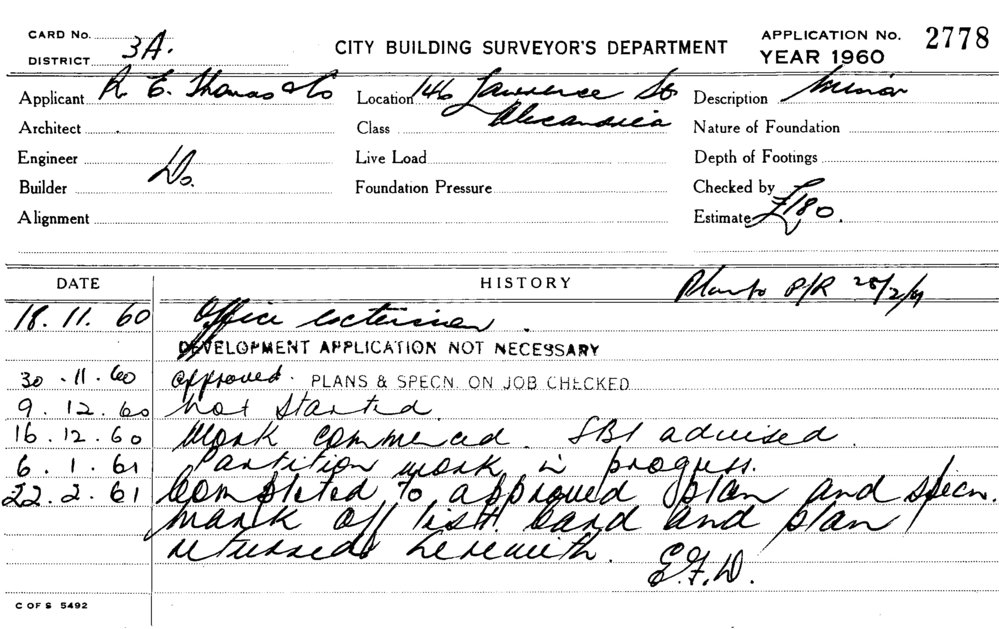 CARD No.
DISTRICT 3A.
CITY BUILDING SURVEYOR'S DEPARTMENT
APPLICATION No. 2778
YEAR 1960
Applicant R. E. Thomas & Co
Location 146 Lawrence St
Alexandria
Description Minor
Architect
Class
Nature of Foundation
Engineer
Live Load
Depth of Footings
Builder Do.
Foundation Pressure
Checked by
Alignment
Estimate £180.
DATE
HISTORY
Plan to P/R 28/2/61
18.11.60 Office extension.
DEVELOPMENT APPLICATION NOT NECESSARY
30.11.60 approved. PLANS & SPECN. ON JOB CHECKED
9.12.60 Not started.
16.12.60 Work commenced. SBI advised.
6.1.61 Partition work in progress.
22.2.61 Completed to approved plan and specn.
mark off list. Card and plan
returned herewith.
E.F.D.
C OF S 5492